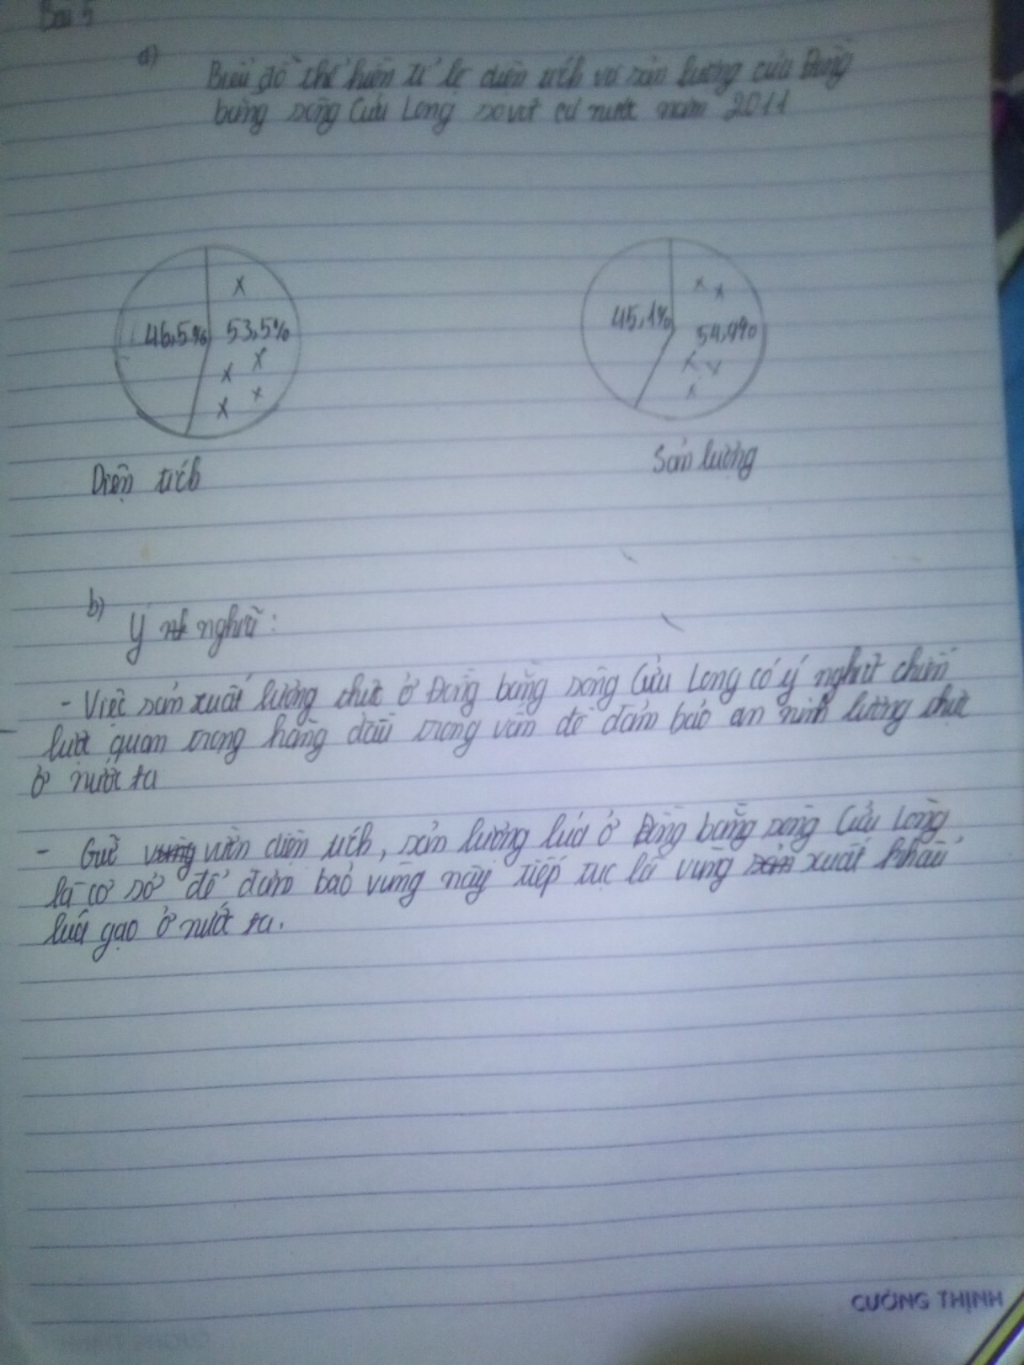 Bài 5
a)
Biểu đồ thể hiện tỉ lệ diện tích và sản lượng của Đồng
bằng sông Cửu Long so với cả nước năm 2011
46,5% 53,5%
45,1% 54,9%
Diện tích
Sản lượng
b)
Ý nghĩa:
- Việc sản xuất lương thực ở Đồng bằng sông Cửu Long có ý nghĩa chiến
lược quan trọng hàng đầu trong vấn đề đảm bảo an ninh lương thực
ở nước ta
- Giữ vững diện tích, sản lượng lúa ở Đồng bằng sông Cửu Long
là cơ sở để đảm bảo vùng này tiếp tục là vùng xuất khẩu
lúa gạo ở nước ta.
CƯỜNG THỊNH